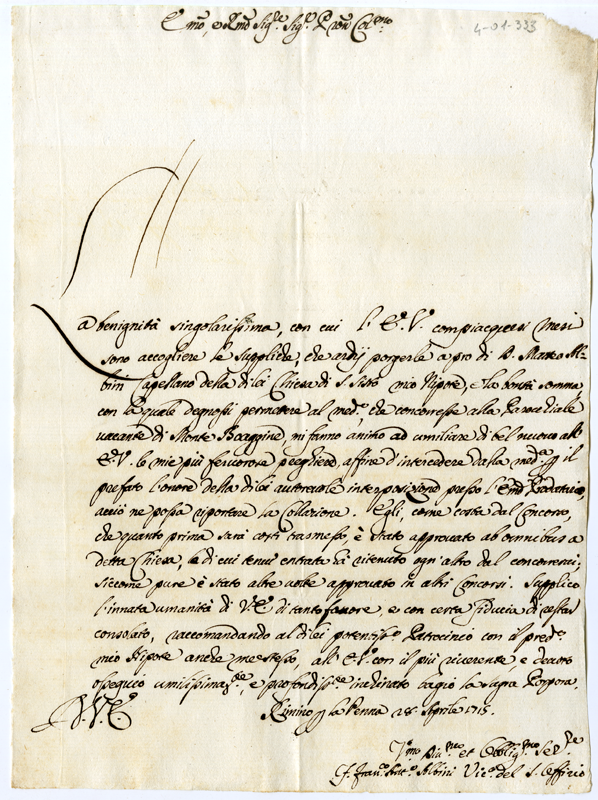 Emo, e Rmo Sigre Sigr Pron Colmo
4-01-333
La benignità singolarissima, con cui l'E.V. compiacquesi mesi
sono accogliere le suppliche, che ardij porgerle a pro di D. Matteo Al-
bini Capellano della di lei Chiesa di S. Sisto mio Nipote, e la bontà somma,
con la quale degnossi permettere al medo che concorresse alla Parochiale
vacante di Monte Boaggine, mi fanno animo ad umiliare di bel nuovo all'
E.V. le mie più fervorose preghiere affine d'intercedere dalla meda per il
prefato l'onore della di lei autorevole interposizione presso l'Emo Prodatario,
acciò ne possa riportare la Collazione. Egli, come costa dal Concorso,
che quanto prima sarà costì trasmesso, è stato approvato ab omnibus a
detta Chiesa, le di cui tenui entrate hà ritenuto ogn'altro dal concorrervi;
siccome pure è stato altre volte approvato in altri Concorsi. Supplico
l'innata umanità di V.E. di tanto favore, e con certa fiducia di restar
consolato, raccomandando al di lei potentissmo Patrocinio con il predo
mio Nipote anche me stesso, all'E.V. con il più riverente e devoto
ossequio umilissimamte, e profondissmte inchinato bagio la Sagra Porpora.
Rimino per la Penna 28. Aprile 1715.
D.V.E.
Vmo Divmo et Obbligmo Serre
F. Franco Anto Albini Vico del S. Officio